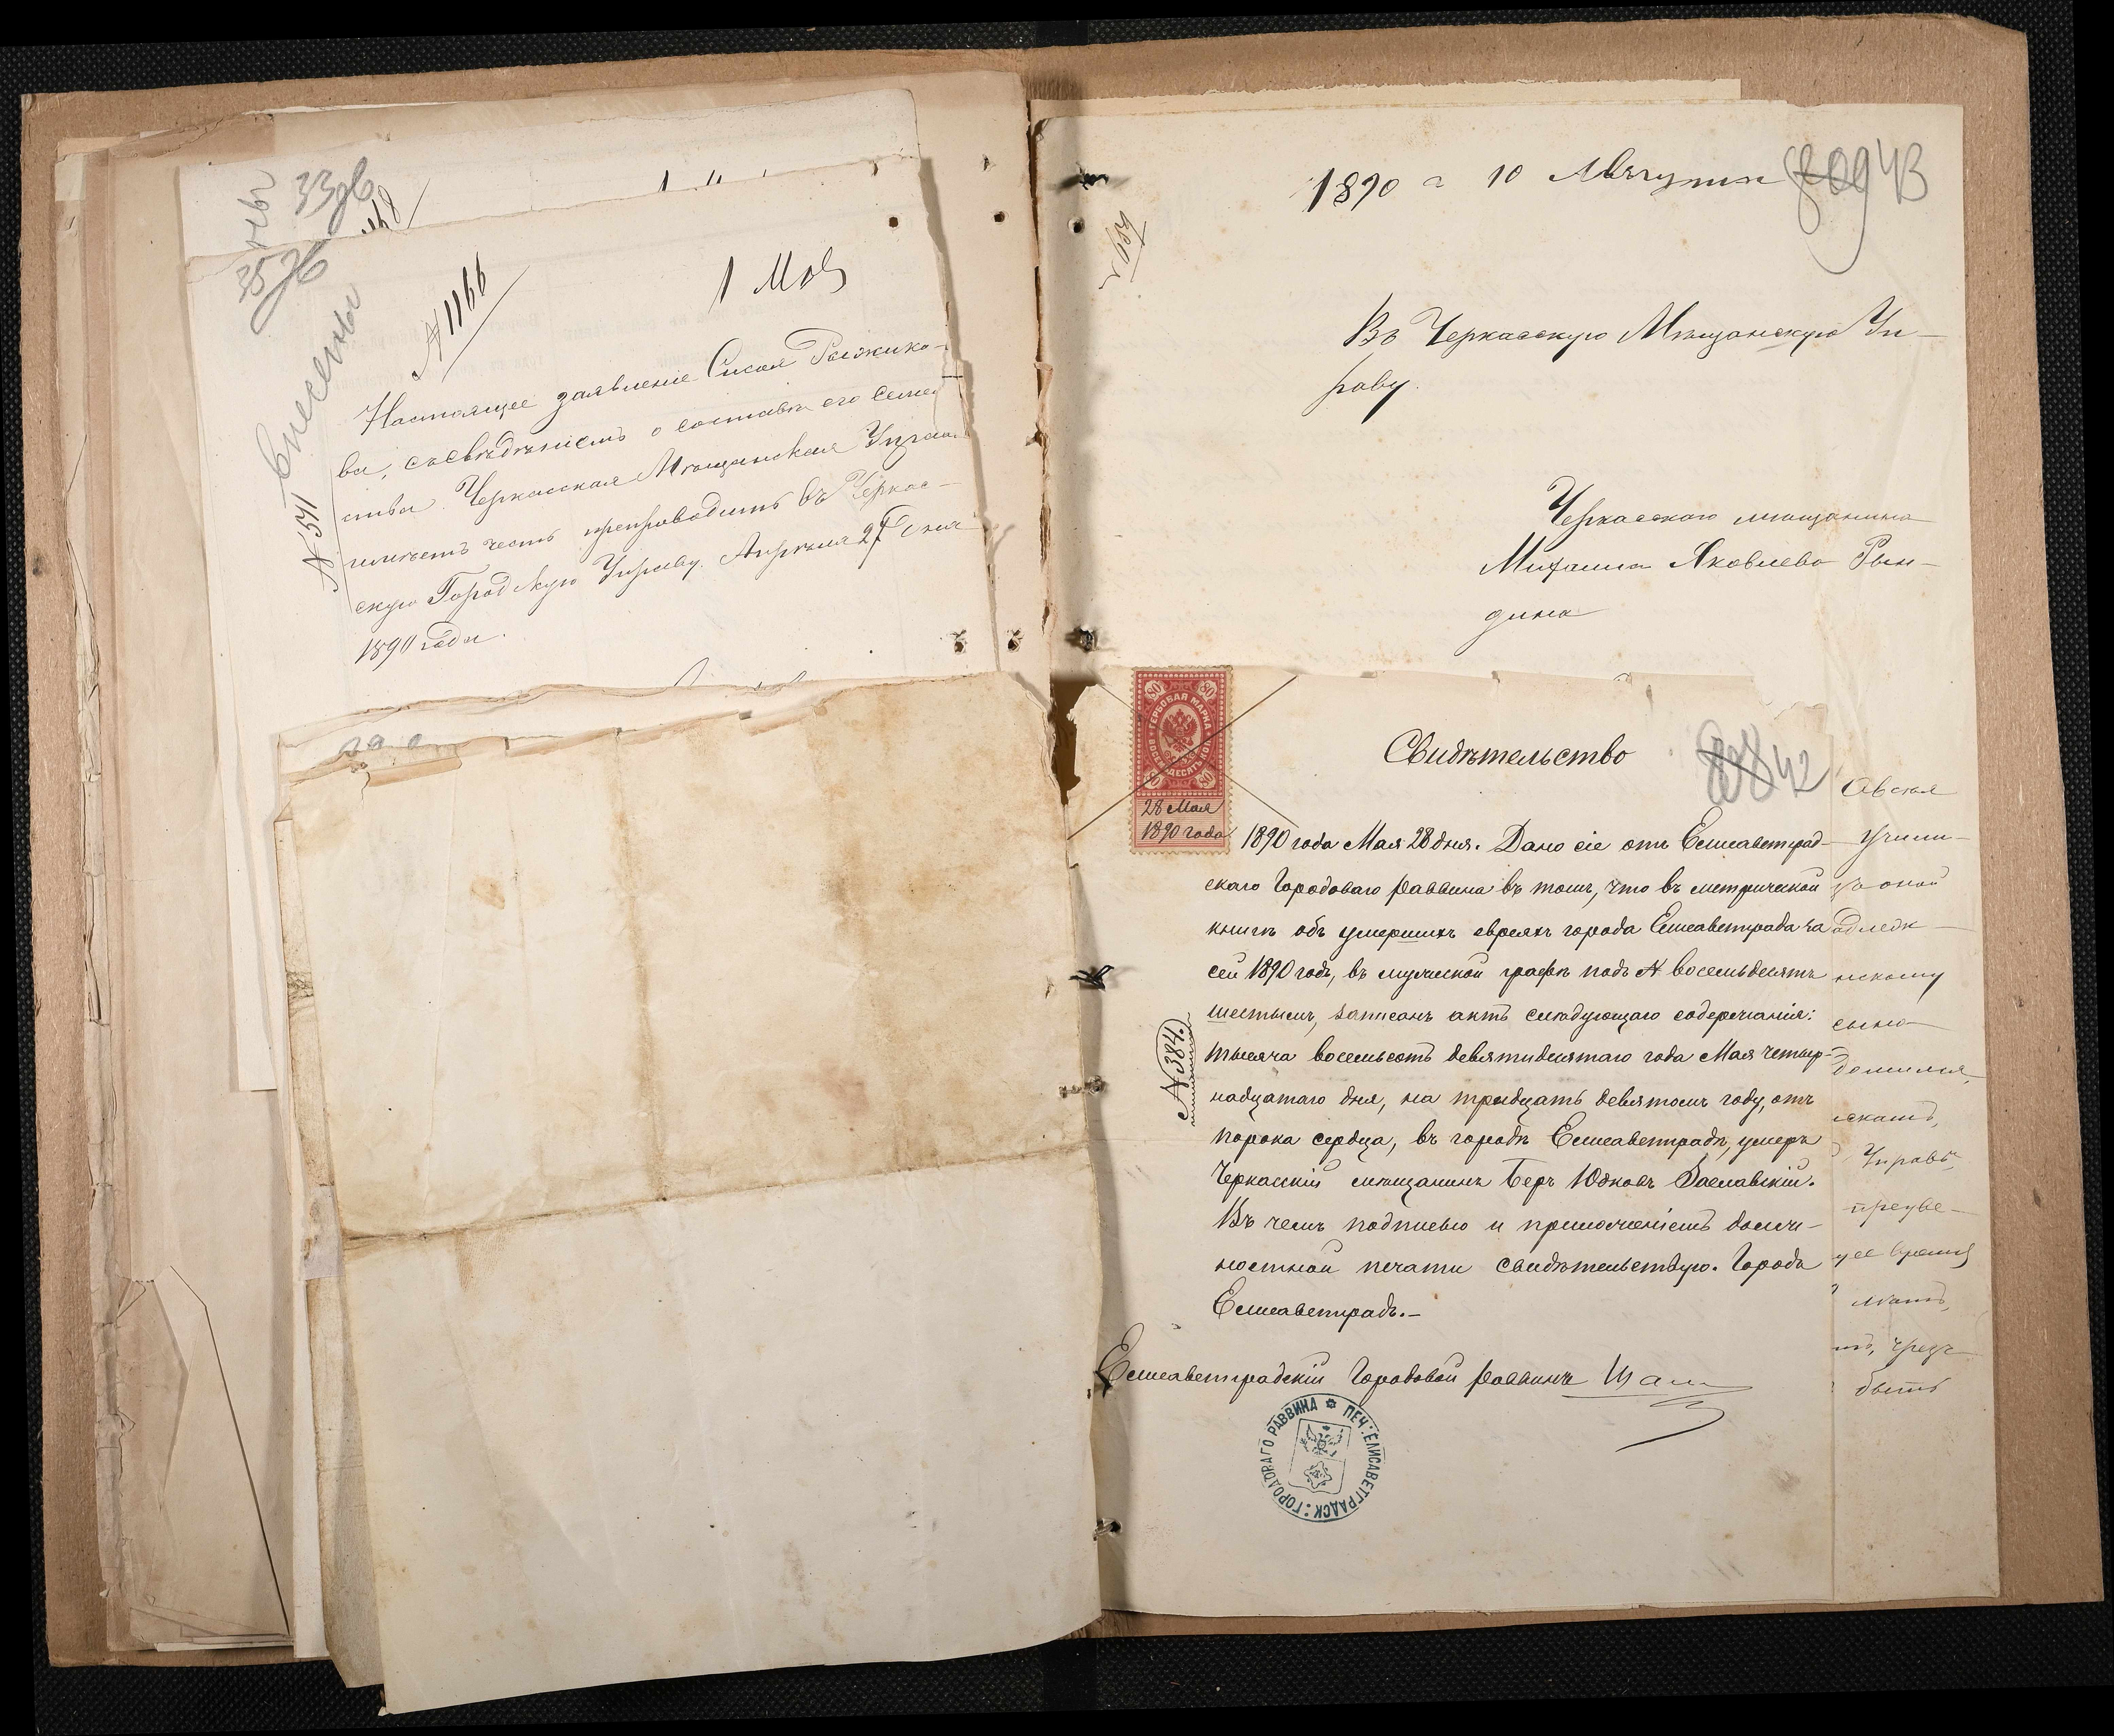 33
35
внесены
№ 1166
1 Мая
№ 541
Настоящее заявленіе Сисоя Рыжико-
ва, съ свѣдѣніемъ о составѣ его семей
ства Черкасская Мѣщанская Управа
имѣетъ честь препроводить въ Черкас-
скую Городскую Управу. Апрѣля 27 дня
1890 года.
1890 г 10 Августа
809 43
№ 609
Въ Черкасскую Мѣщанскую Уп-
раву.
Черкасскаго мѣщанина
Михаила Яковлева Рын-
дина
ГЕРБОВАЯ МАРКА
ВОСЕМЬДЕСЯТЪ КОП.
80 80
80 80
28 Мая
1890 года
Свидѣтельство
42
1890 года Мая 28 дня. Дано сіе отъ Елисаветград-
скаго Городоваго раввина въ томъ, что въ метрической
книгѣ объ умершихъ евреяхъ города Елисаветграда за
сей 1890 годъ, въ мужеской графѣ подъ № восемьдесятъ
шестымъ, записанъ актъ слѣдующаго содержанія:
тысяча восемьсотъ девятидесятаго года Мая четыр-
надцатаго дня, на тридцать девятомъ году, отъ
порока сердца, въ городѣ Елисаветградѣ, умеръ
Черкасскій мѣщанинъ Беръ Юдковъ Заславскій.
Въ чемъ подписью и приложеніемъ долж-
ностной печати свидѣтельствую. Городъ
Елисаветградъ.-
Елисаветградскій Городовой раввинъ
№ 384.
ПЕЧ: ЕЛИСАВЕТГРАДСК: ГОРОДОВАГО РАВВИНА
учили-
за оной
нскому
сына
Управѣ
преуве-
щее время
чрезъ
быть